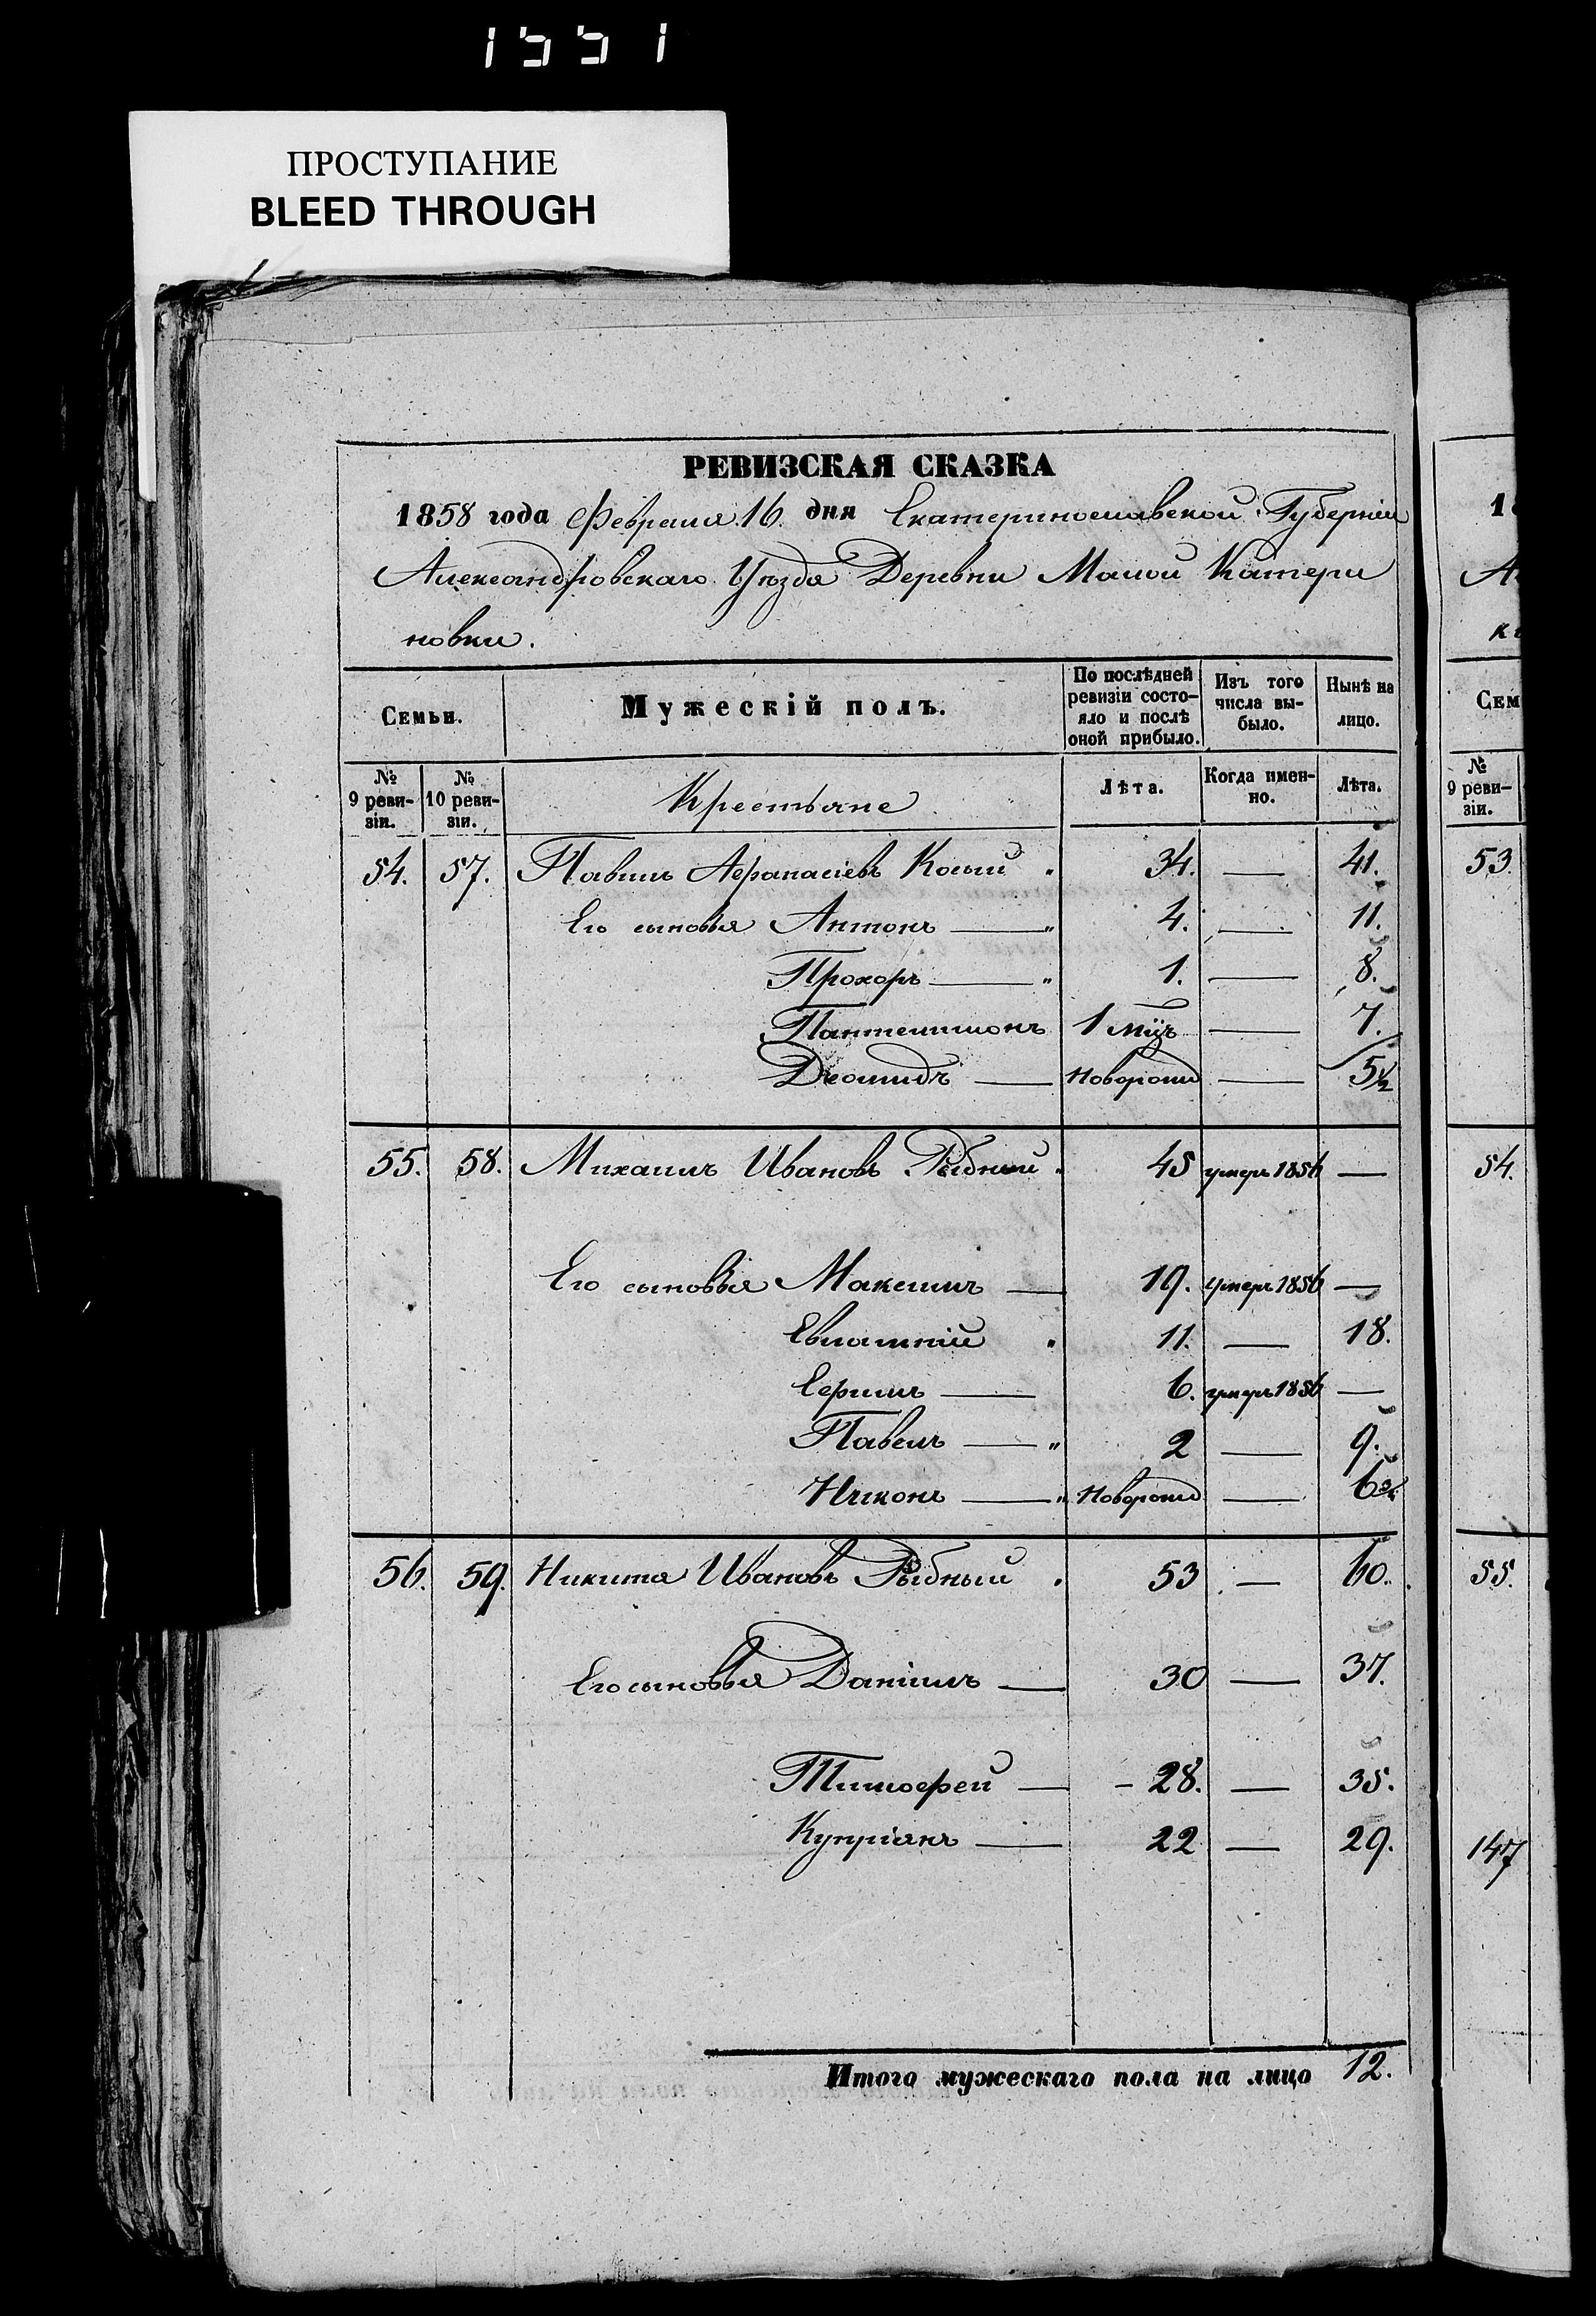 1551
ПРОСТУПАНИЕ
BLEED THROUGH
РЕВИЗСКАЯ СКАЗКА
1858 года Февраля 16 дня Екатеринославской Губерніи
Александровскаго Уѣзда Деревни Малой Катери
новки.
Семьи. Мужескій полъ. По послѣдней ревизіи состо- яло и послѣ оной прибыло. Изъ того числа вы- было. Нынѣ на лицо.
№ 9 реви- зіи. № 10 реви- зіи. Крестьяне Лѣта. Когда имен- но. Лѣта.
54. 57. Павелъ Афанасіевъ Косый 34. — 41.
Его сыновья Антонъ — " 4. — 11.
Прохоръ — " 1. — 8.
Пантелимонъ 1 мцъ — 7.
Деомидъ — Новорожд — 5½
55. 58. Михаилъ Ивановъ Рыбный 45 умеръ 1856 —
Его сыновья Максимъ — 19. умеръ 1856 —
Евлампій " 11. — 18.
6. умеръ 1856 —
Павелъ — " 2 — 9.
Никонъ — " Новорожд — 6¾
56. 59. Никита Ивановъ Рыбный 53 — 60.
Его сыновья Даніилъ — 30 — 37.
Тимофей — 28. — 35.
Купріянъ — 22 — 29.
Итого мужескаго пола на лицо 12.
1
А
к
Сем
№ 9 реви- зіи.
53
54.
55.
147